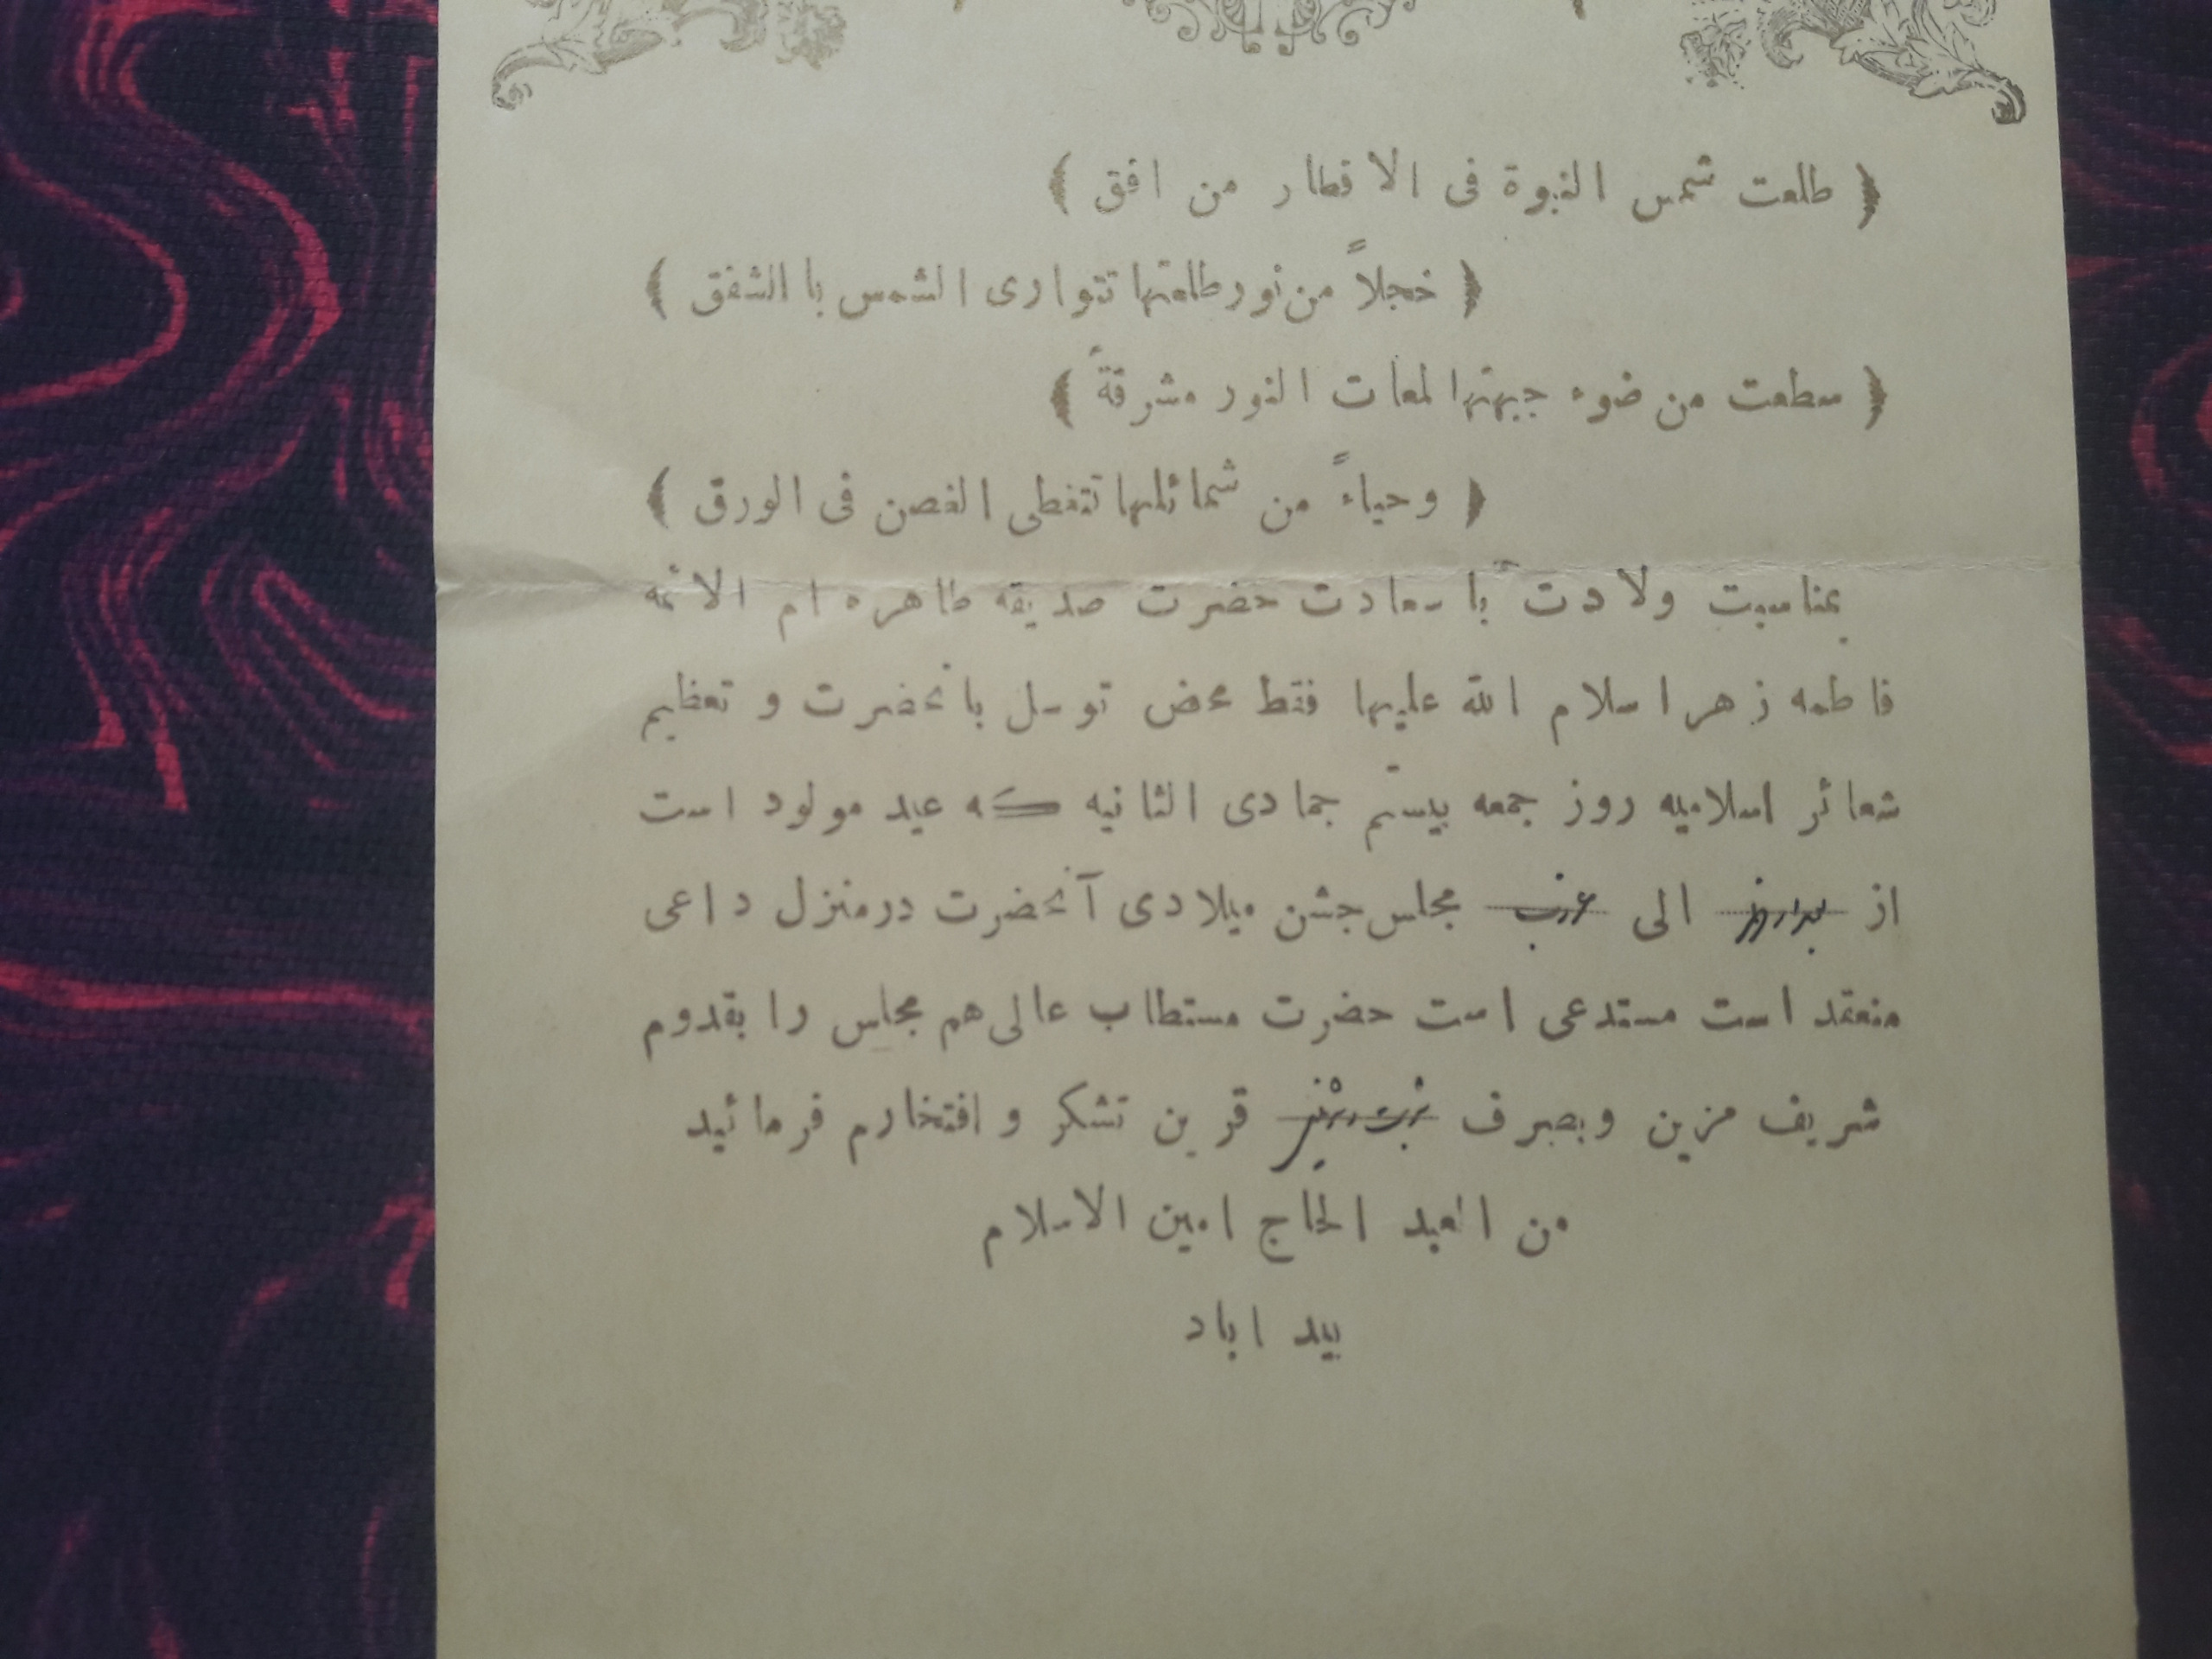 ﴿ طلعت شمس النبوة فی الاقطار من افق ﴾
﴿ خجلاً من نور طلعتها تتواری الشمس با الشفق ﴾
﴿ سطعت من ضوء جبهتها لمعات النور مشرقةً ﴾
﴿ وحیاءً من شمائلها تتغطی الغصن فی الورق ﴾
بمناسبت ولادت با سعادت حضرت صدیقه طاهره ام الائمه
فاطمه زهرا سلام الله علیها فقط محض توسل بانحضرت و تعظیم
شعائر اسلامیه روز جمعه بیستم جمادی الثانیه که عید مولود است
از الی مجلس جشن میلادی آنحضرت در منزل داعی
منعقد است مستدعی است حضرت مستطاب عالی هم مجلس را بقدوم
شریف مزین و بصرف قرین تشکر و افتخارم فرمائید
من العبد الحاج امین الاسلام
بید اباد